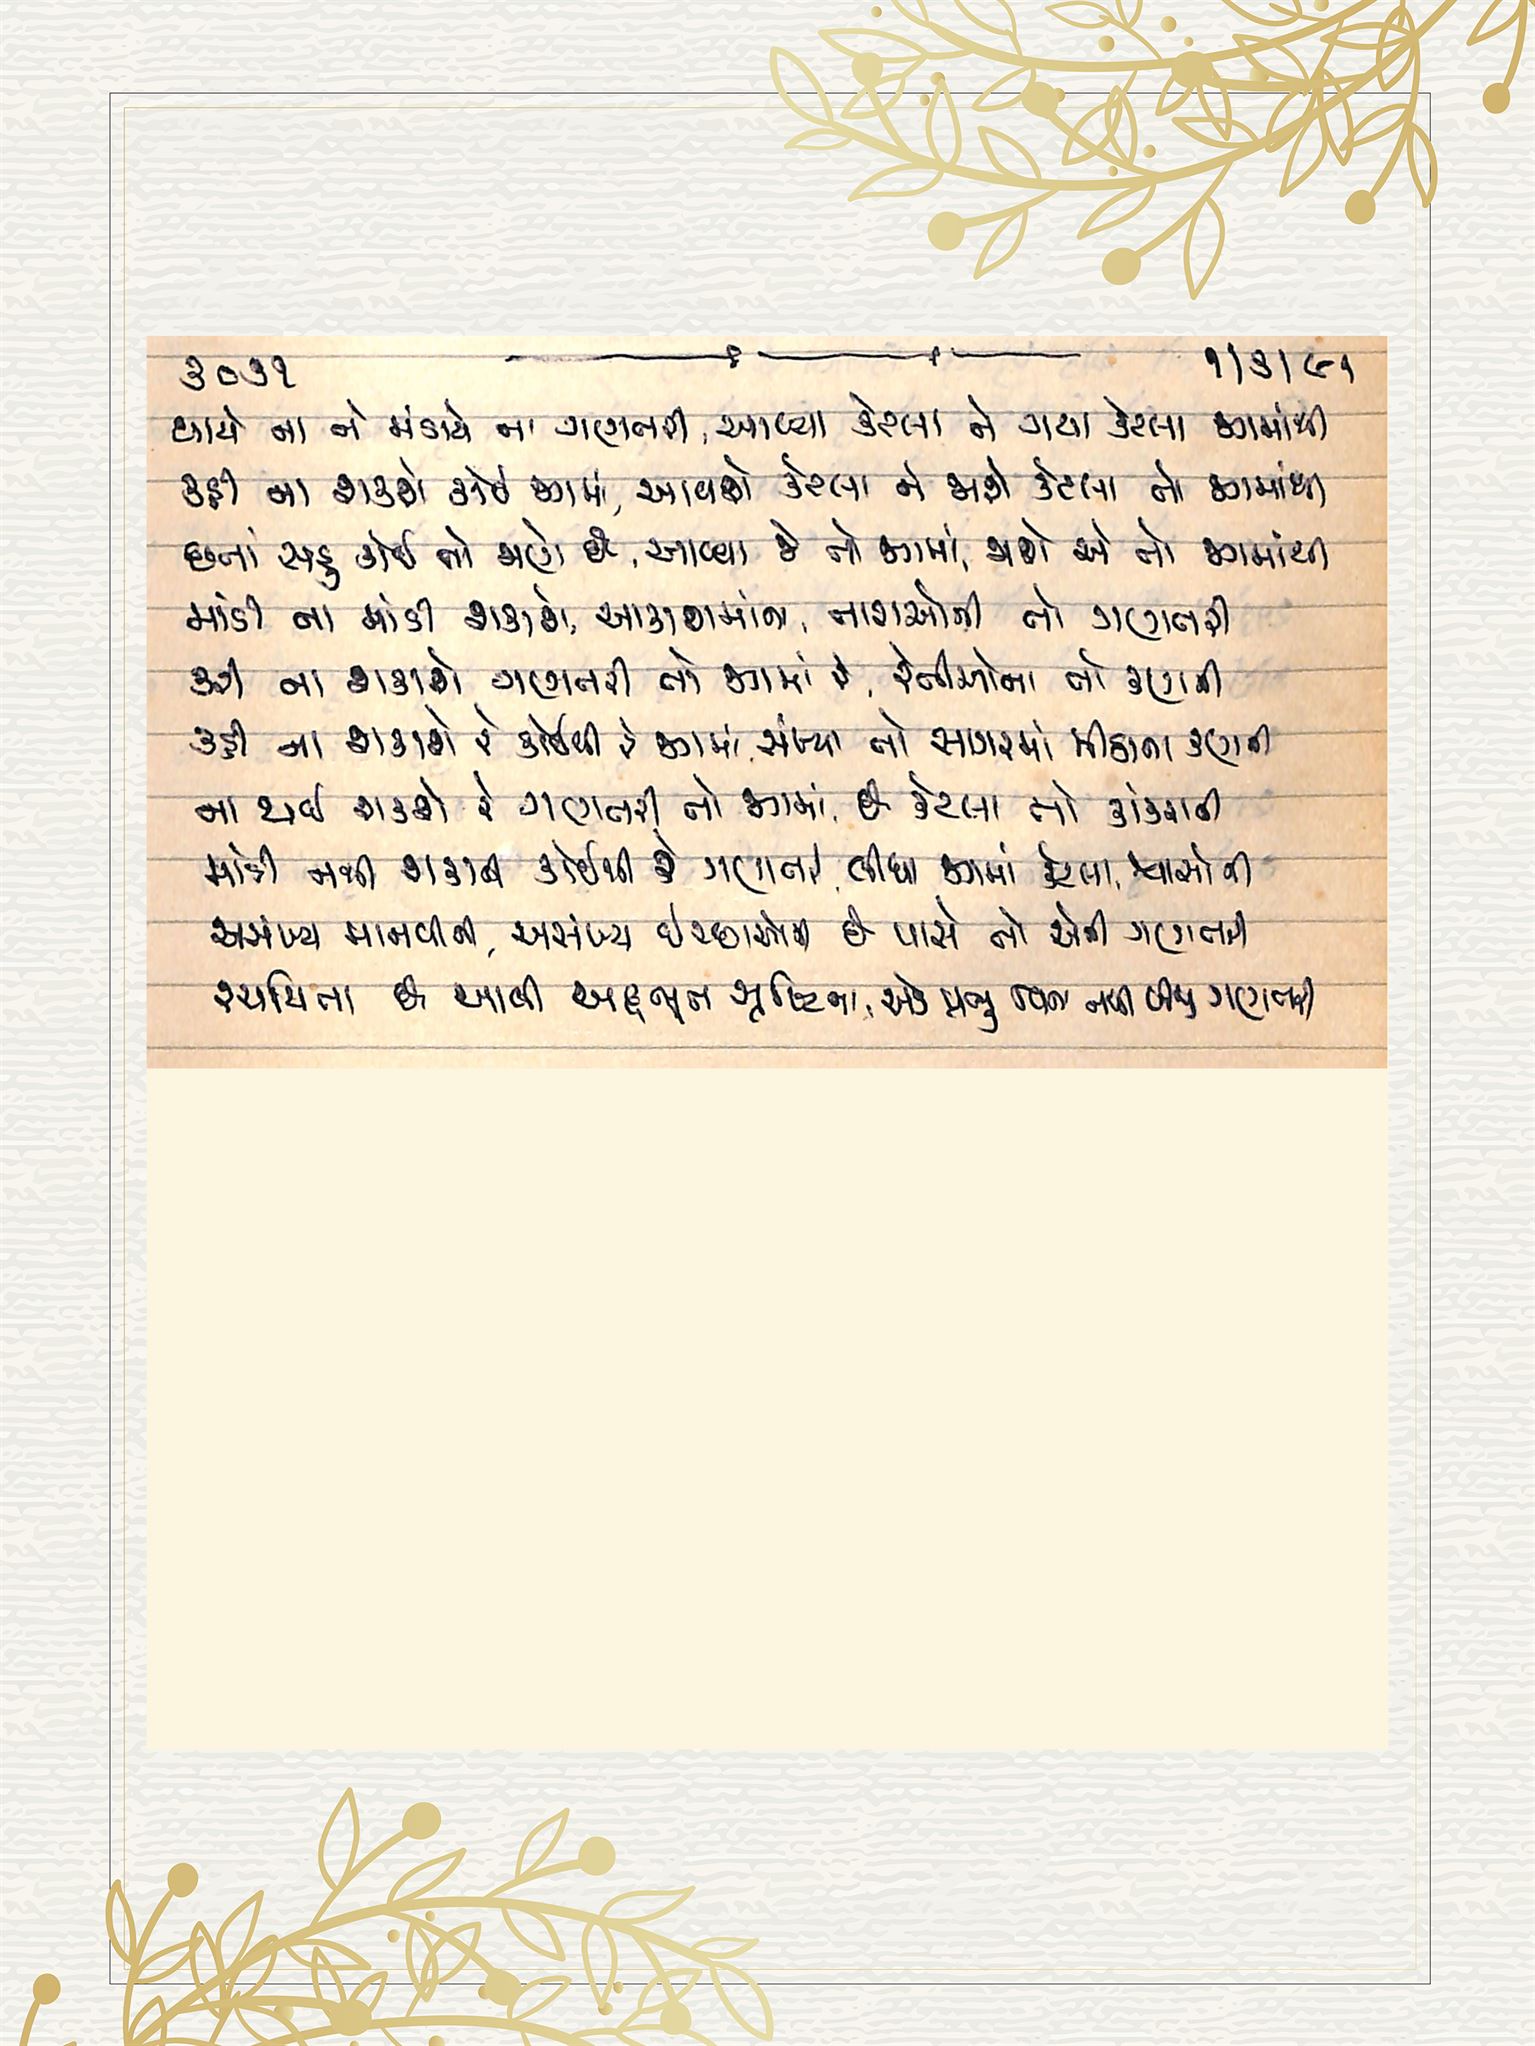 ૩૦૩૧ ૧/૩/૯૧
થાયે ના ને મંડાયે ના ગણતરી, આવ્યા કેટલા ને ગયા કેટલા જગમાંથી
કહી ના શકશે કોઈ જગમાં, આવશે કેટલા ને જાશે કેટલા તો જગમાંથી
છતાં સહુ કોઈ તો જાણે છે, આવ્યા જે તો જગમાં, જાશે એ તો જગમાંથી
માંડી ના માંડી શકાશે, આકાશમાંના, તારાઓની તો ગણતરી
કરી ના શકાશે ગણતરી તો જગમાં રે, રેતીઓના તો કણની
કહી ના શકાશે રે કોઈથી રે જગમાં, સંખ્યા તો સાગરમાં મીઠાના કણની
ના થઈ શકશે રે ગણતરી તો જગમાં, છે કેટલા તો કાંકરાની
માંડી નથી શકાતી કોઈથી રે ગણતરી, લીધા જગમાં કેટલા, શ્વાસોની
અસંખ્ય માનવીની, અસંખ્ય ઇચ્છાઓની છે પાસે તો એની ગણતરી
રચયિતા છે આવી અદ્ભૂત સૃષ્ટિના, એક પ્રભુ વિના નથી બીજી ગણતરી